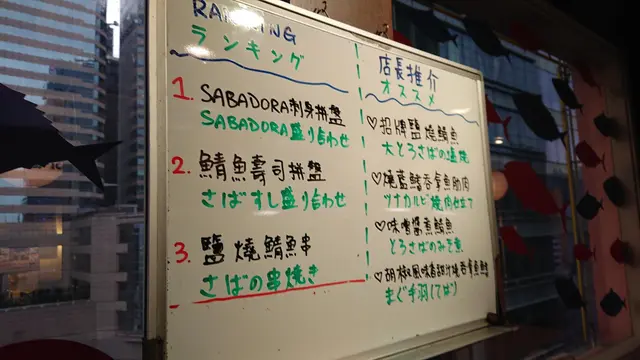 RANKING
ランキング
1. SABADORA刺身拼盤
SABADORA盛り合わせ
2. 鯖魚壽司拼盤
さばずし盛り合わせ
3. 鹽燒鯖魚串
さばの串焼き
店長推介
オススメ
♡招牌鹽燒鯖魚
大とろさばの塩焼
♡燒藍鰭吞拿魚肋肉
ツナカルビ焼肉仕立て
♡味噌醬煮鯖魚
とろさばのみそ煮
♡胡椒風味
まぐ手羽(てば)